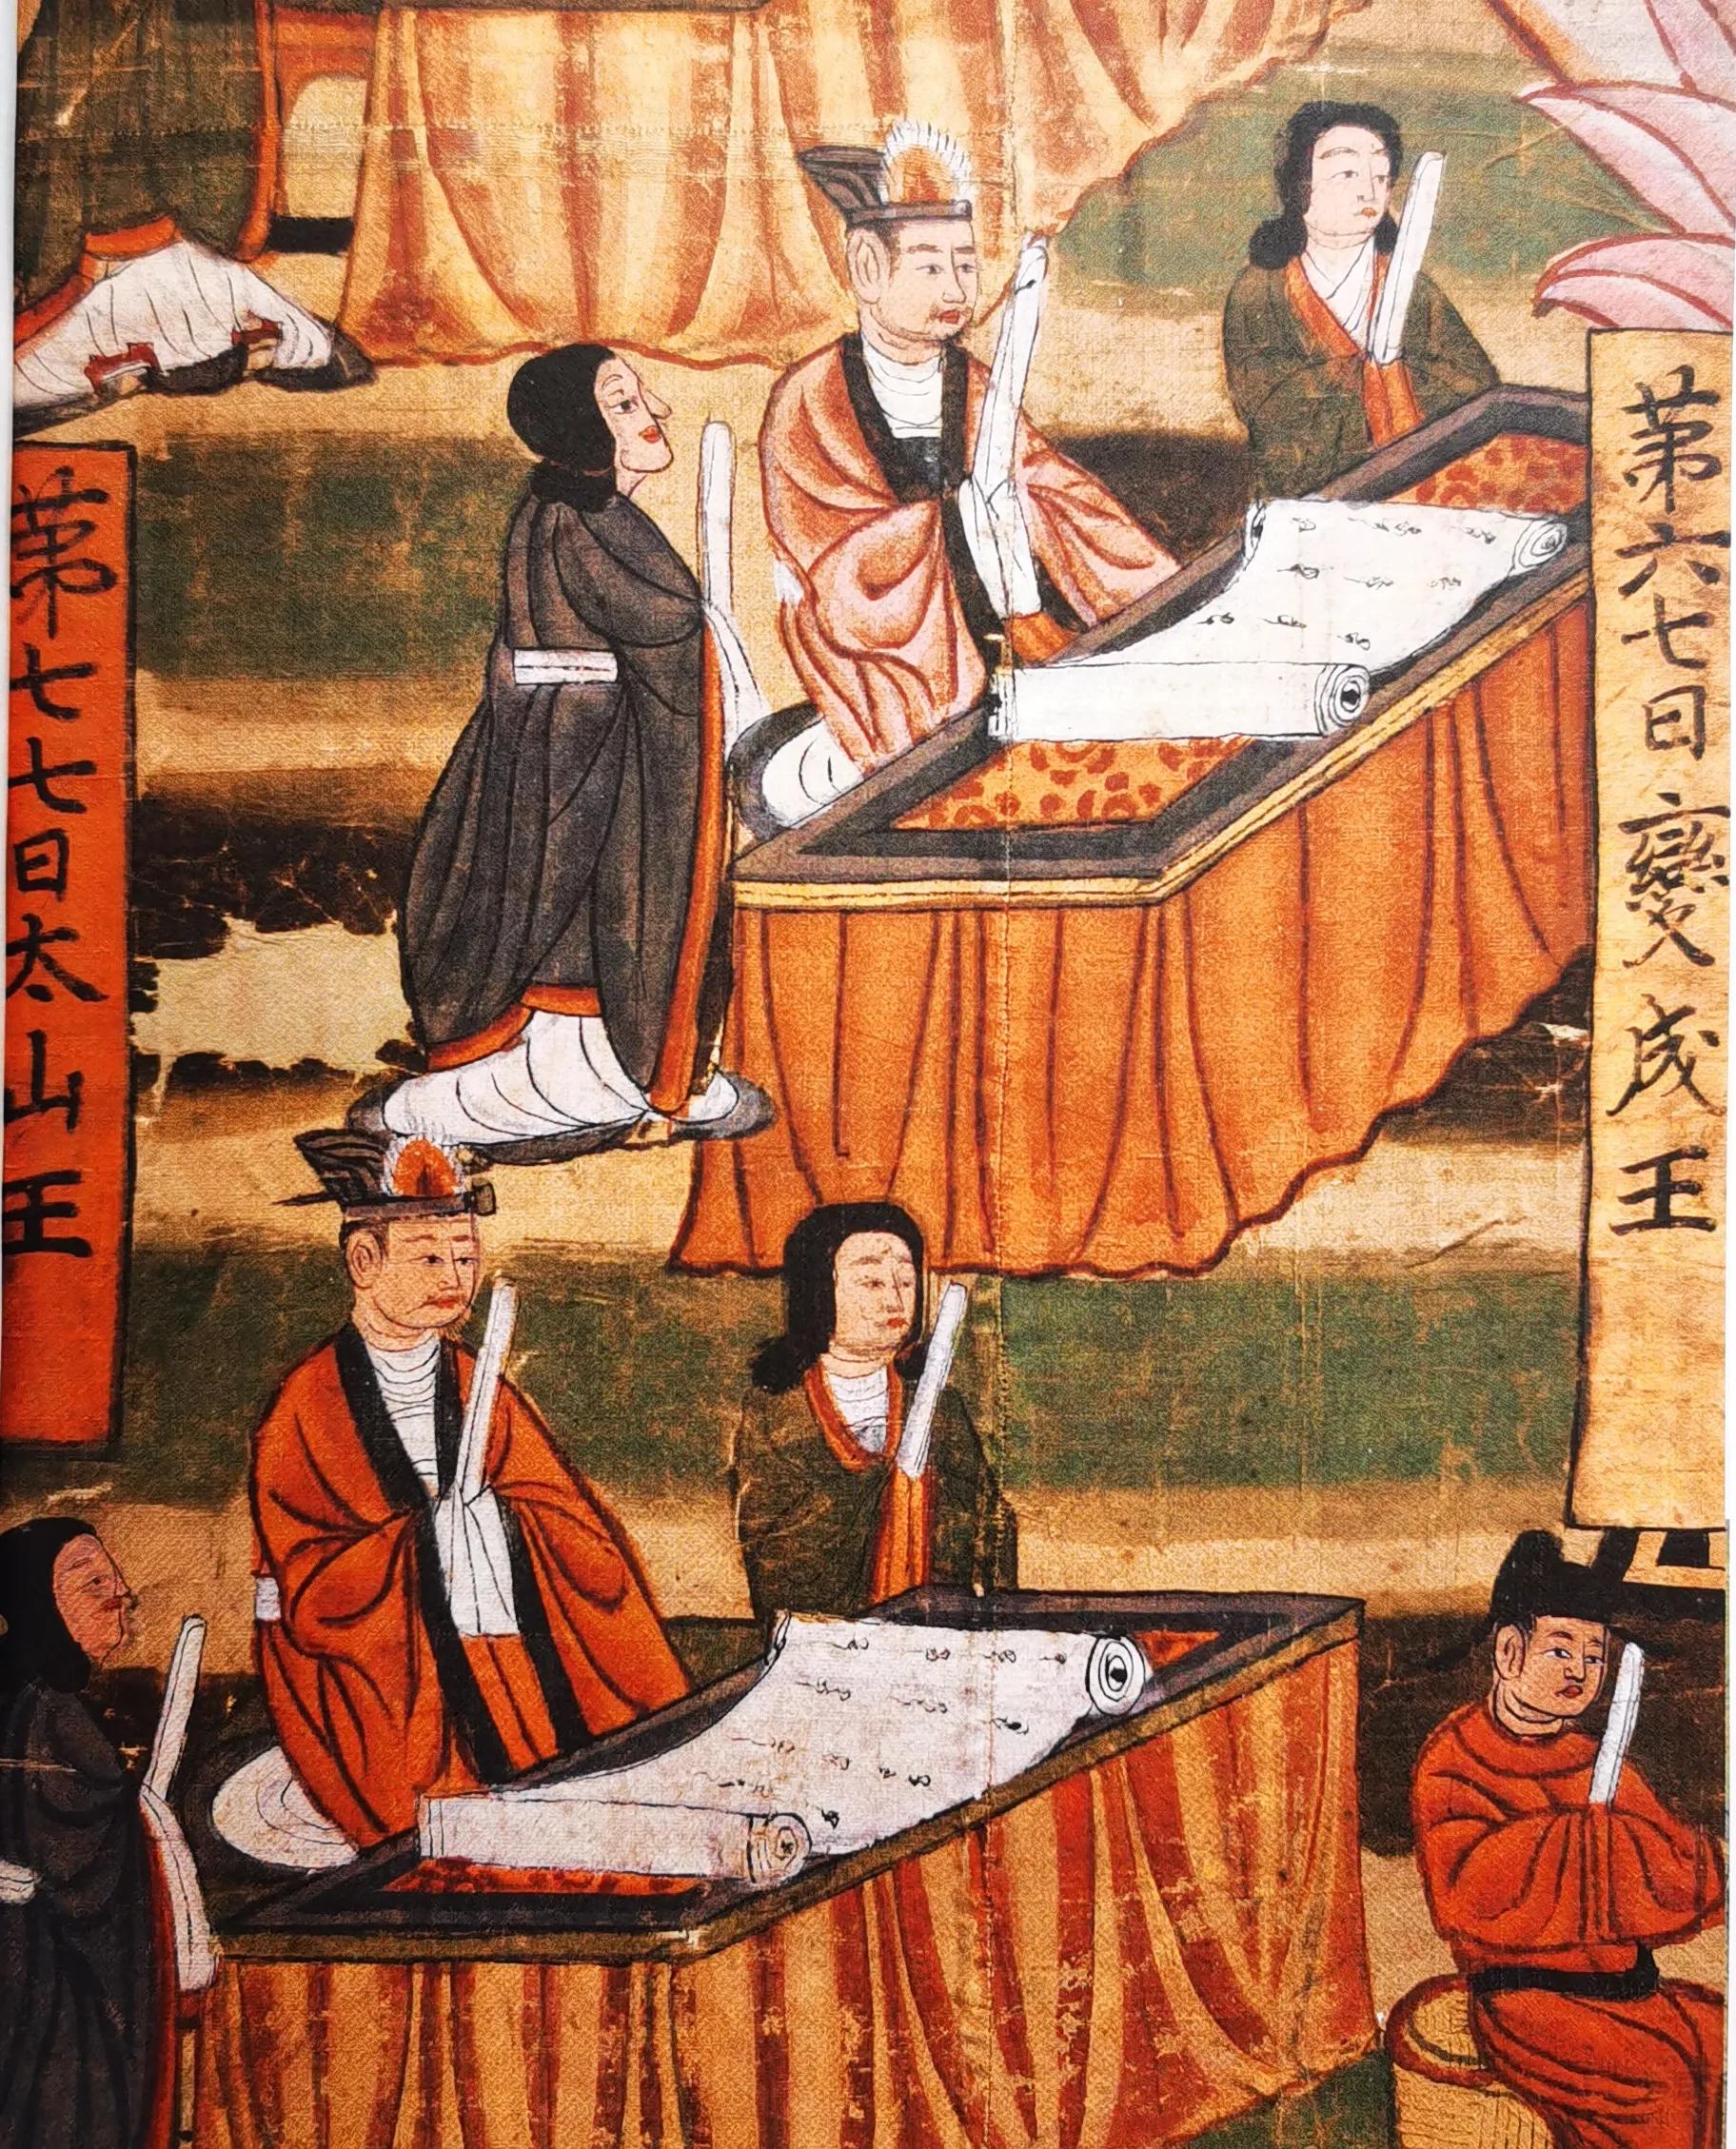 第六七日變成王
第七七日太山王